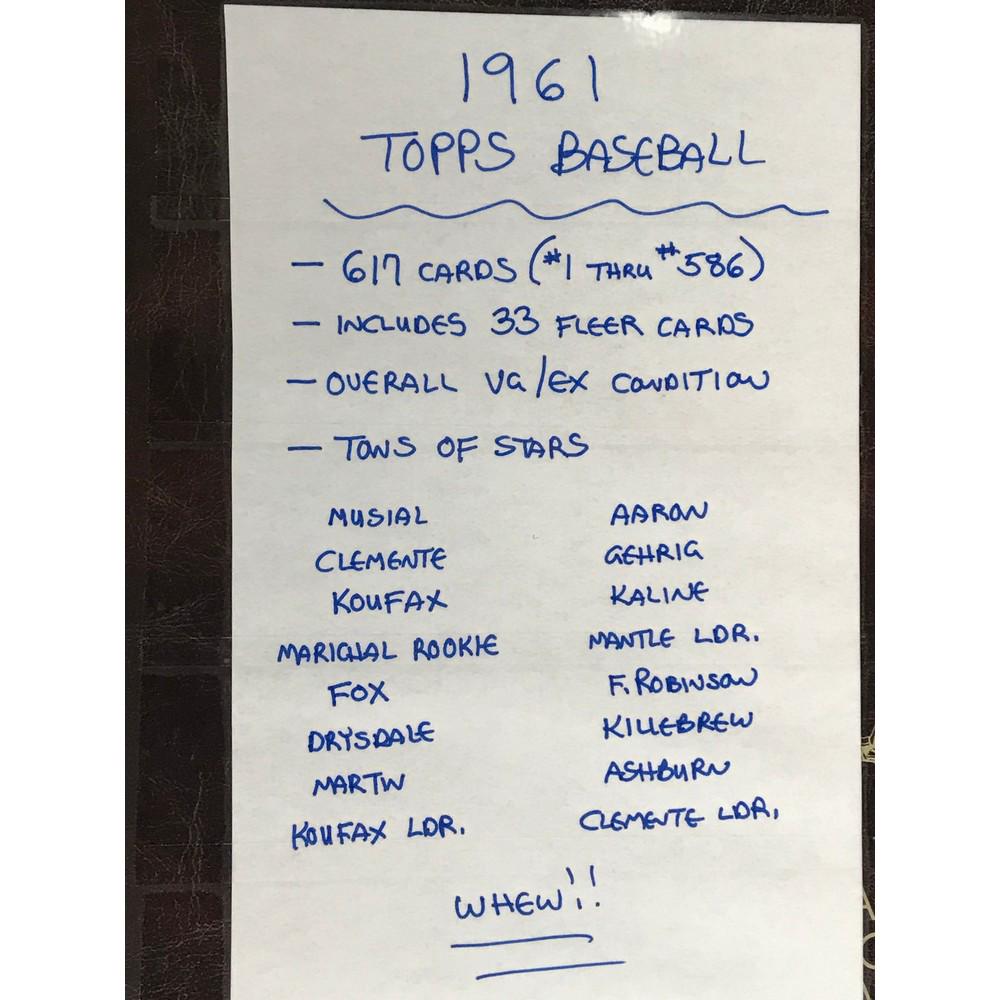 1961
TOPPS BASEBALL
— 617 CARDS (#1 THRU #586)
— INCLUDES 33 FLEER CARDS
— OVERALL VG/EX CONDITION
— TONS OF STARS
MUSIAL AARON
CLEMENTE GEHRIG
KOUFAX KALINE
MARICHAL ROOKIE MANTLE LDR.
FOX F. ROBINSON
DRYSDALE KILLEBREW
MARTIN ASHBURN
KOUFAX LDR. CLEMENTE LDR.
WHEW!!